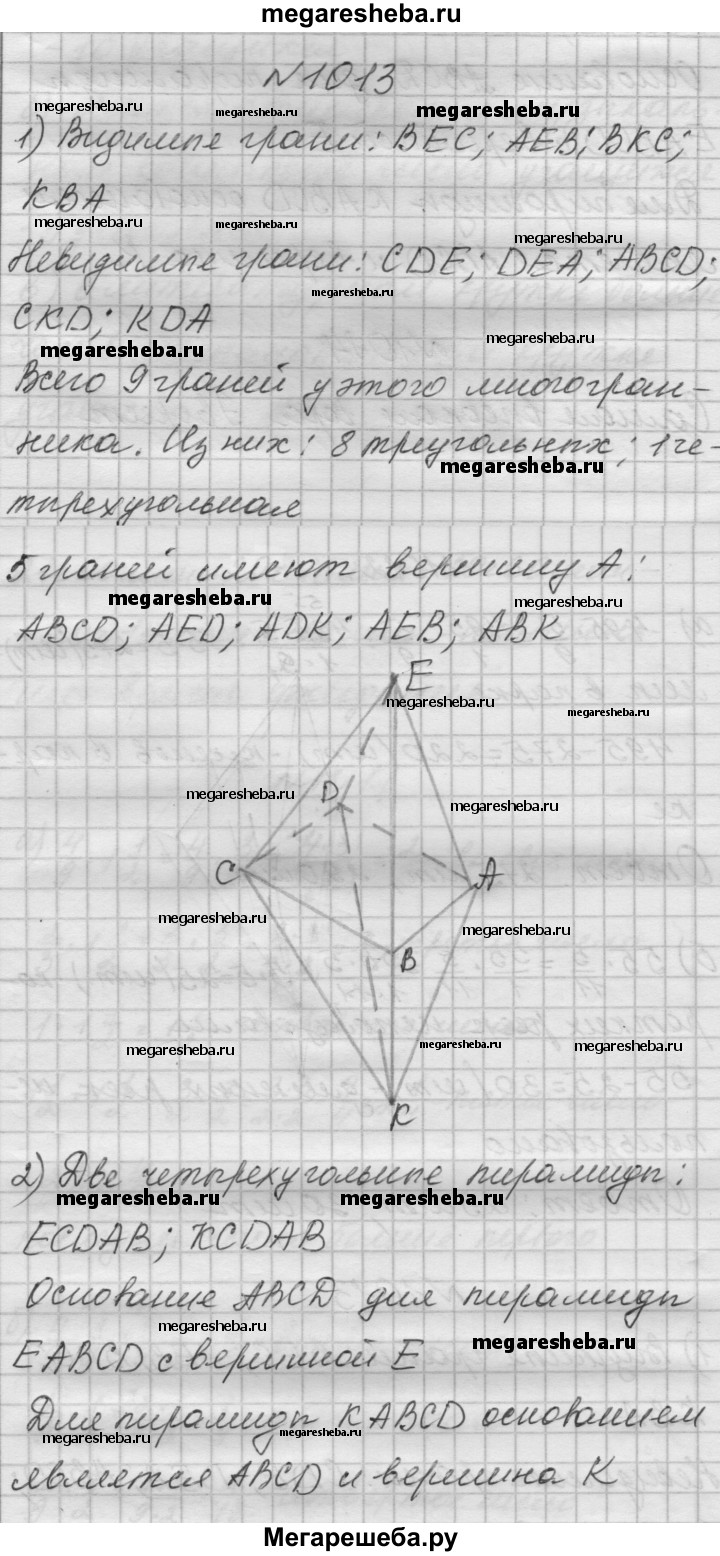 megaresheba.ru
№1013
megaresheba.ru megaresheba.ru megaresheba.ru
1) Видимые грани: BEC; AEB; BKC;
KBA
megaresheba.ru megaresheba.ru megaresheba.ru
Невидимые грани: CDE; DEA; ABCD;
megaresheba.ru
CKD; KDA
megaresheba.ru megaresheba.ru
Всего 9 граней у этого многогран-
ника. Из них: 8 треугольных; 1 че-
megaresheba.ru
тырехугольная
5 граней имеют вершину A:
megaresheba.ru megaresheba.ru
ABCD; AED; ADK; AEB; ABK
E
megaresheba.ru megaresheba.ru
megaresheba.ru D megaresheba.ru
C A
megaresheba.ru megaresheba.ru
B
megaresheba.ru megaresheba.ru megaresheba.ru
K
2) Две четырехугольные пирамиды:
megaresheba.ru megaresheba.ru
ECDAB; KCDAB
Основание ABCD для пирамиды
megaresheba.ru megaresheba.ru
EABCD с вершиной E
Для пирамиды KABCD основанием
megaresheba.ru megaresheba.ru
является ABCD и вершина K
Мегарешеба.ру